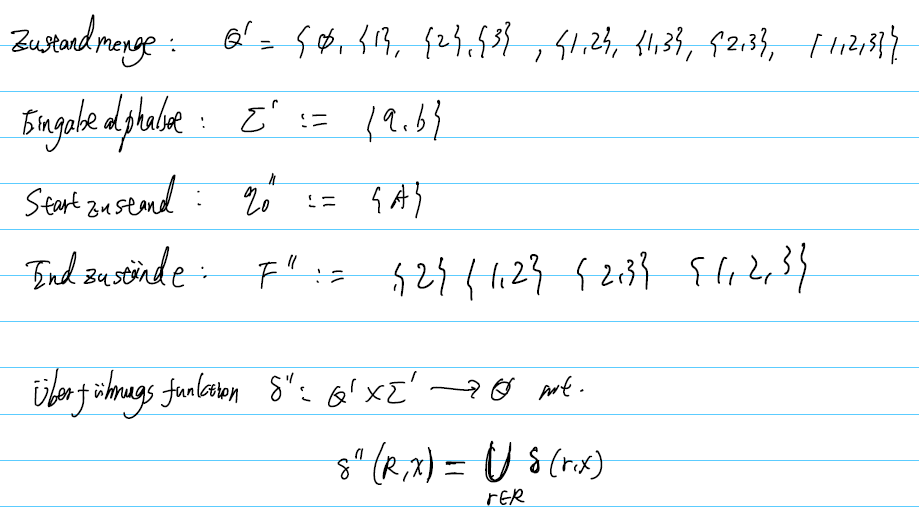 Zustandmenge : Q' = { ∅, {1}, {2}, {3} , {1,2}, {1,3}, {2,3}, {1,2,3}}
Eingabealphabe : Σ' := {a,b}
Startzustand : q₀" := {A}
Endzustände : F" := {2} {1,2} {2,3} {1,2,3}
Überführungsfunktion δ" : Q' × Σ' → Q mt.
δ"(R,x) = ⋃ δ(r,x)
r∈R